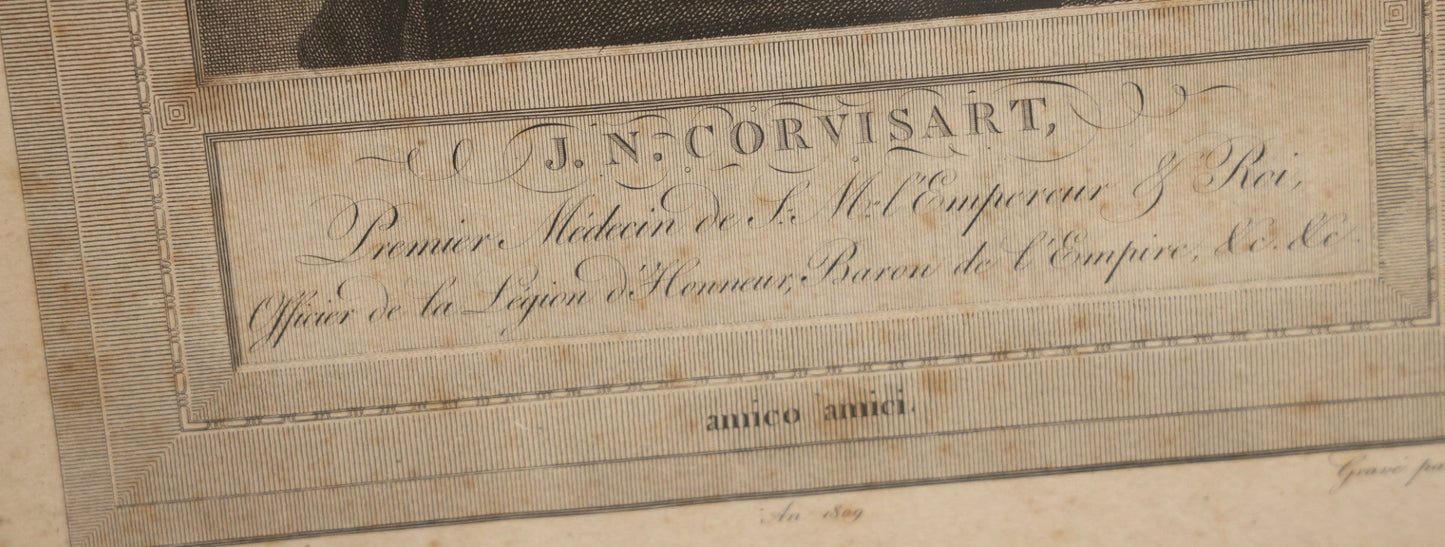 J. N. CORVISART,
Premier Médecin de S. M. l'Empereur & Roi,
Officier de la Légion d'Honneur, Baron de l'Empire, &c. &c.
amico amici.
Gravé pa
An 1809